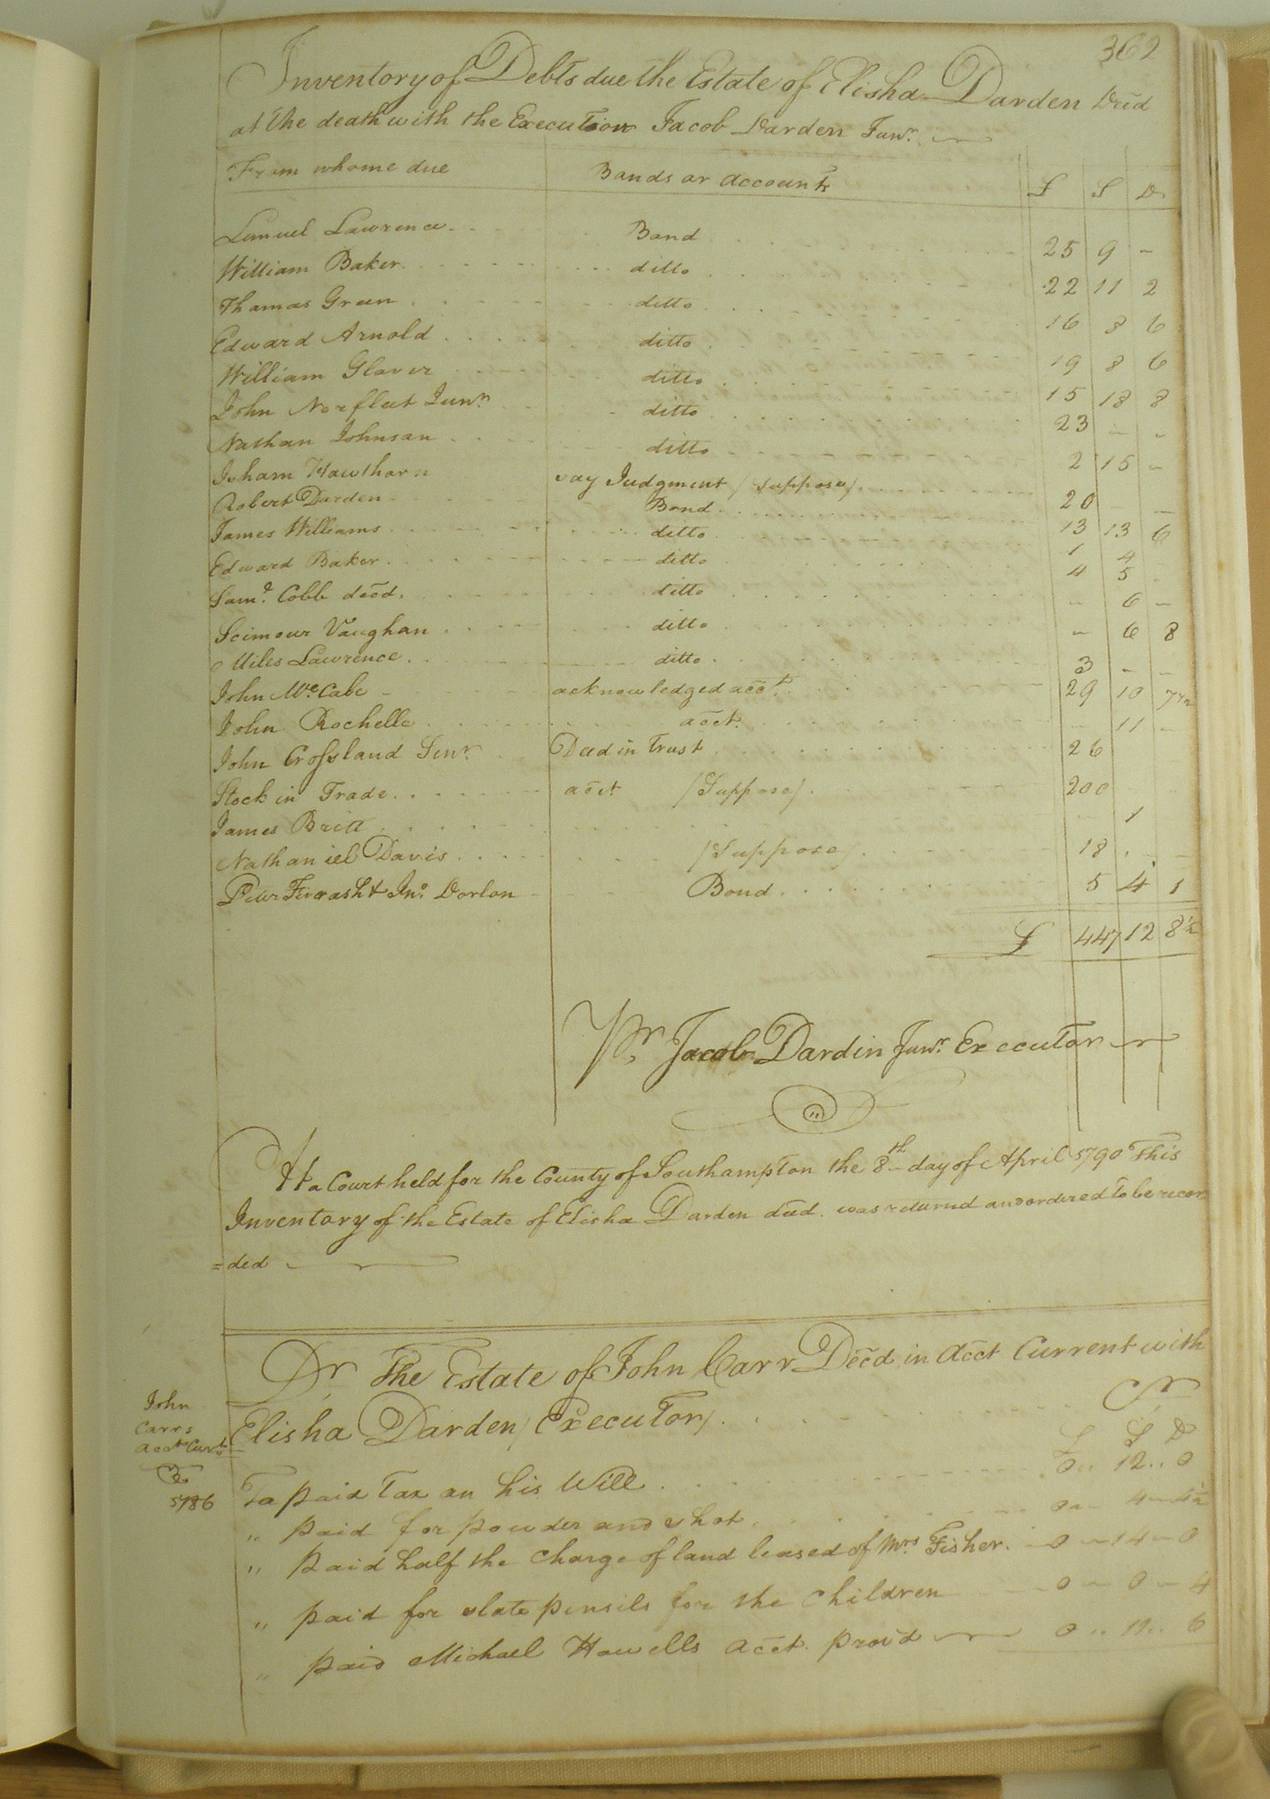 362
Inventory of Debts due the Estate of Elisha Darden Decd
at the death with the Executor Jacob Darden Junr.
From whome due Bonds or accounts £ S D.
Lemuel Lawrence Bond 25 9 -
William Baker ditto 22 11 2
Thomas Green ditto 16 8 6
Edward Arnold ditto 19 8 6
William Glover ditto 15 18 8
John Norfleet Junr ditto 23 - -
Nathan Johnson ditto 2 15 -
Isham Hawthorn say Judgment / Suppose / 20 - -
Robert Darden Bond 13 13 6
James Williams ditto 1 4
Edward Baker ditto 4 5 -
Saml. Cobb decd. ditto - 6 -
Seimour Vaughan ditto - 6 8
Miles Lawrence ditto 3 - -
John McCabe acknowledged acct. 29 10 7 1/2
John Rochelle acct. - 11 -
John Crossland Senr. Deed in Trust 26
Stock in Trade acct / Suppose / 200
James Britt - 1
Nathaniel Davis / Suppose / 18 - -
& Jno. Dorlon Bond 5 4 1
£ 447 12 8 1/2
Pr Jacob Dardin Junr. Executor
At a Court held for the County of Southampton the 8th day of April 1790 This
Inventory of the Estate of Elisha Darden decd. was returned and ordered to be recor
=ded
Dr The Estate of John Carr Decd in acct Current with
Elisha Darden / Executor / Cr
John
Carrs
acct Curt
£ S D
To paid Tax on his Will 0 .. 12 .. 0
1786
" paid for powder and shot 0 - 4 - 4 1/2
" paid half the charge of land leased of Mrs Fisher. 0 - 14 - 0
" paid for slate pensils for the children 0 - 0 - 4
" paid Michael Howells acct. prov'd 0 .. 11 .. 6